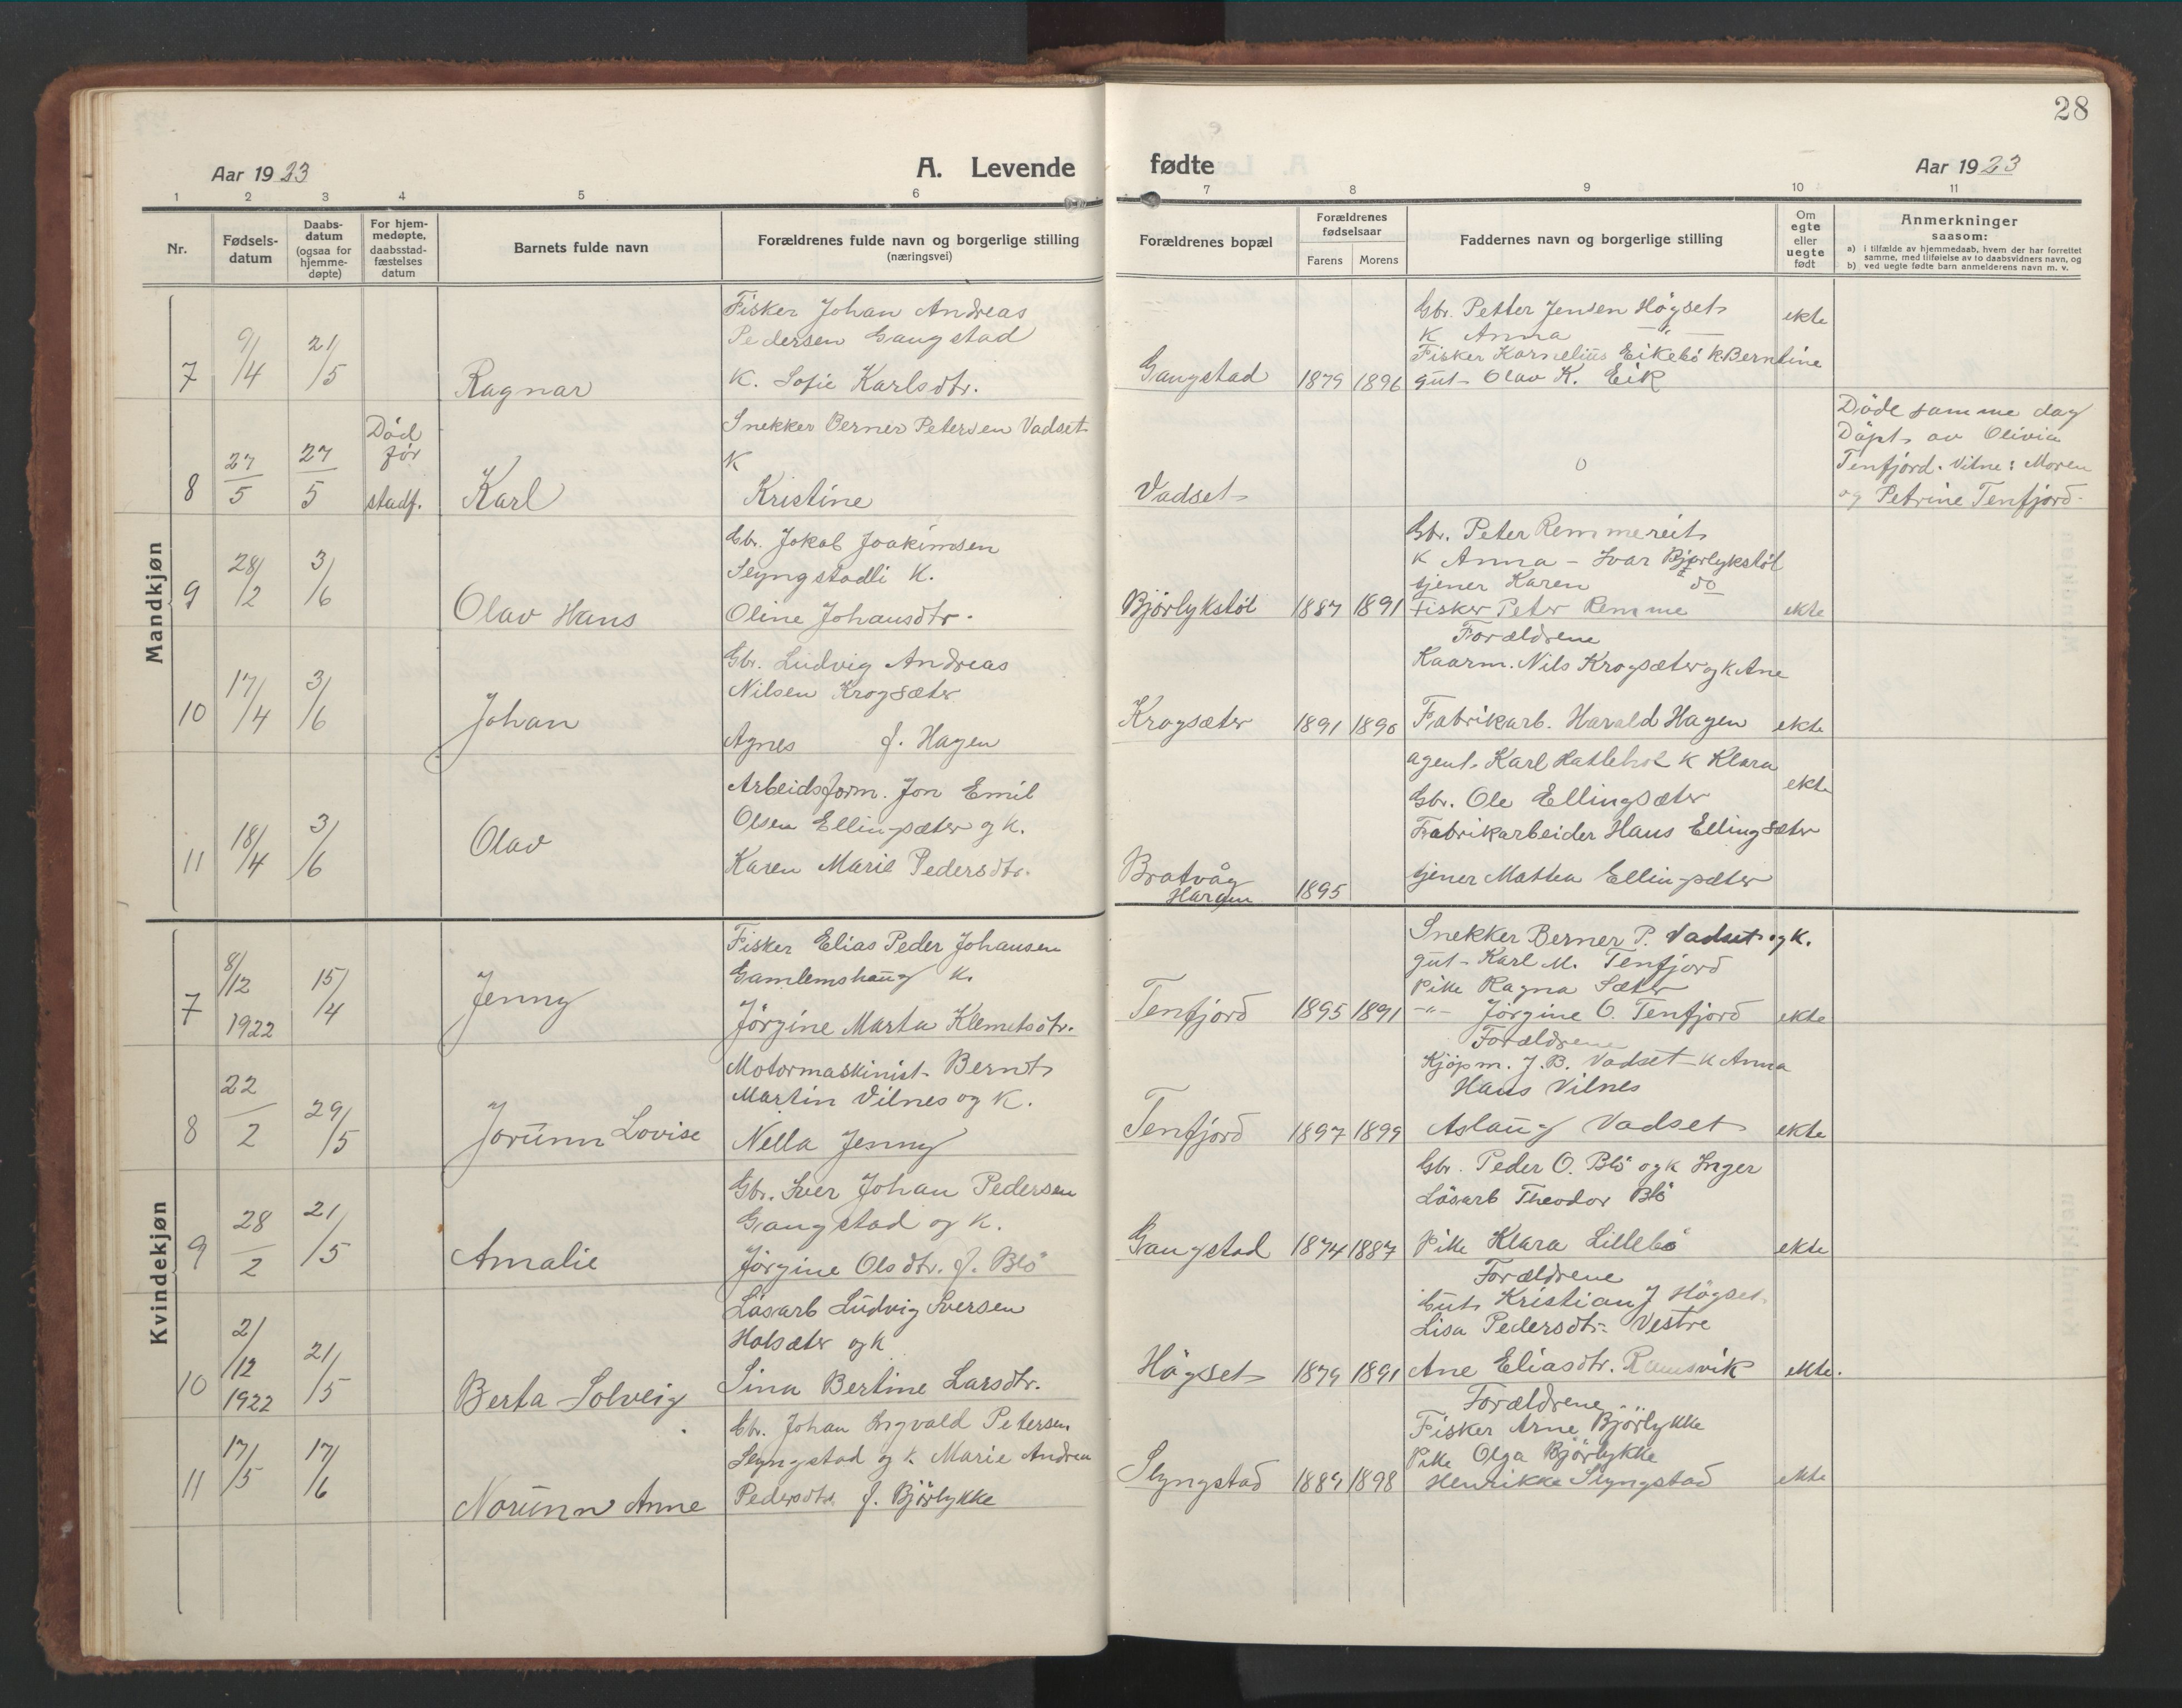 28
Aar 1923
A. Levende
fødte
Aar 1923
1 2 3 4 5 6 7 8 9 10 11
Nr.
Fødsels-
datum
Daabs-
datum
(ogsaa for
hjemme-
døpte)
For hjem-
medøpte,
daabsstad-
fæstelses
datum
Barnets fulde navn
Forældrenes fulde navn og borgerlige stilling
(næringsvei)
Forældrenes bopæl
Forældrenes
fødselsaar
Farens Morens
Faddernes navn og borgerlige stilling
Om
egte
eller
uegte
født
Anmerkninger
saasom:
a) i tilfælde av hjemmedaab, hvem der har forrettet
samme, med tilføielse av to daabsvidners navn, og
b) ved uegte fødte barn anmelderens navn m. v.
Mandkjøn
7
9/4
21/5
Ragnar
Fisker Johan Andreas
Pedersen Gangstad
K. Sofie Karlsdtr.
Gangstad
1879 1896
Gbr. Petter Jensen Högset
K Anna —"—
Fisker Kornelius Eikebö k Berntine
gut Olav K. Eik
ekte
8
27/5
27/5
Död
för
stadf.
Karl
Snekker Berner Petersen Vadset
K
Kristine
Vadset
0
Döde samme dag
Döpt av Olivia
Tenfjord. Vitne: Moren
og Petrine Tenfjord
9
28/2
3/6
Olav Hans
Gbr. Jokob Joakimsen
Slyngstadli K.
Oline Johansdtr.
Bjørlykstöl
1887 1891
Gbr. Peter Remmereit
K Anna – Ivar Bjørlykstöl
tjener Karen " do
Fisker Peter Remme
ekte
10
17/4
3/6
Johan
Gbr. Ludvig Andreas
Nilsen Krogsæter
Agnes f. Hagen
Krogsæter
1891 1890
Forældrene
Kaarm. Nils Krogsæter og k Ane
Fabrikarb. Harald Hagen
ekte
11
18/4
3/6
Olav
Arbeidsform. Jon Emil
Olsen Ellingsæter og k.
Karen Marie Pedersdtr.
Bratvåg
Haram
1895
agent Karl Hatlehol K Klara
Gbr. Ole Ellingsæter
Fabrikarbeider Hans Ellingsæter
tjener Mathea Ellingsæter
ekte
Kvindekjøn
7
8/12
1922
15/4
Jenny
Fisker Elias Peder Johansen
Gamlemshaug K.
Jörgine Marta Klemetsdtr.
Tenfjord
1895 1891
Snekker Berner P. Vadset og k.
gut Karl M. Tenfjord
Pike Ragna Sæter
–"– Jörgine O. Tenfjord
ekte
8
22/2
29/5
Jorunn Lovise
Motormaskinist Bernt
Martin Vilnes og K.
Nella Jenny
Tenfjord
1897 1899
Forældrene
Kjöpm. J. B. Vadset – k Anna
Hans Vilnes
Aslaug Vadset
ekte
9
28/2
21/5
Amalie
Gbr. Iver Johan Pedersen
Gangstad og K.
Jörgine Olsdtr. f. Blö
Gangstad
1874 1887
Gbr. Peder O. Blö og k Inger
Lösarb Theodor Blö
Pike Klara Lillebö
ekte
10
2/12
1922
21/5
Berta Solveig
Lösarb Ludvig Iversen
Holsæter og k
Sina Bertine Larsdtr.
Högset
1879 1891
Forældrene
Gut Kristian J Högset
Lisa Pedersdtr. Vestre
Ane Eliasdtr. Ramsvik
ekte.
11
17/5
17/6
Norunn Anne
Gbr. Johan Ingvald Petersen
Slyngstad og k Marie Andrea
Pedersdtr. f. Björlykke
Slyngstad
1889 1898
Forældrene
Fisker Arne Björlykke
Pike Olga Björlykke
Henrikke Slyngstad
ekte